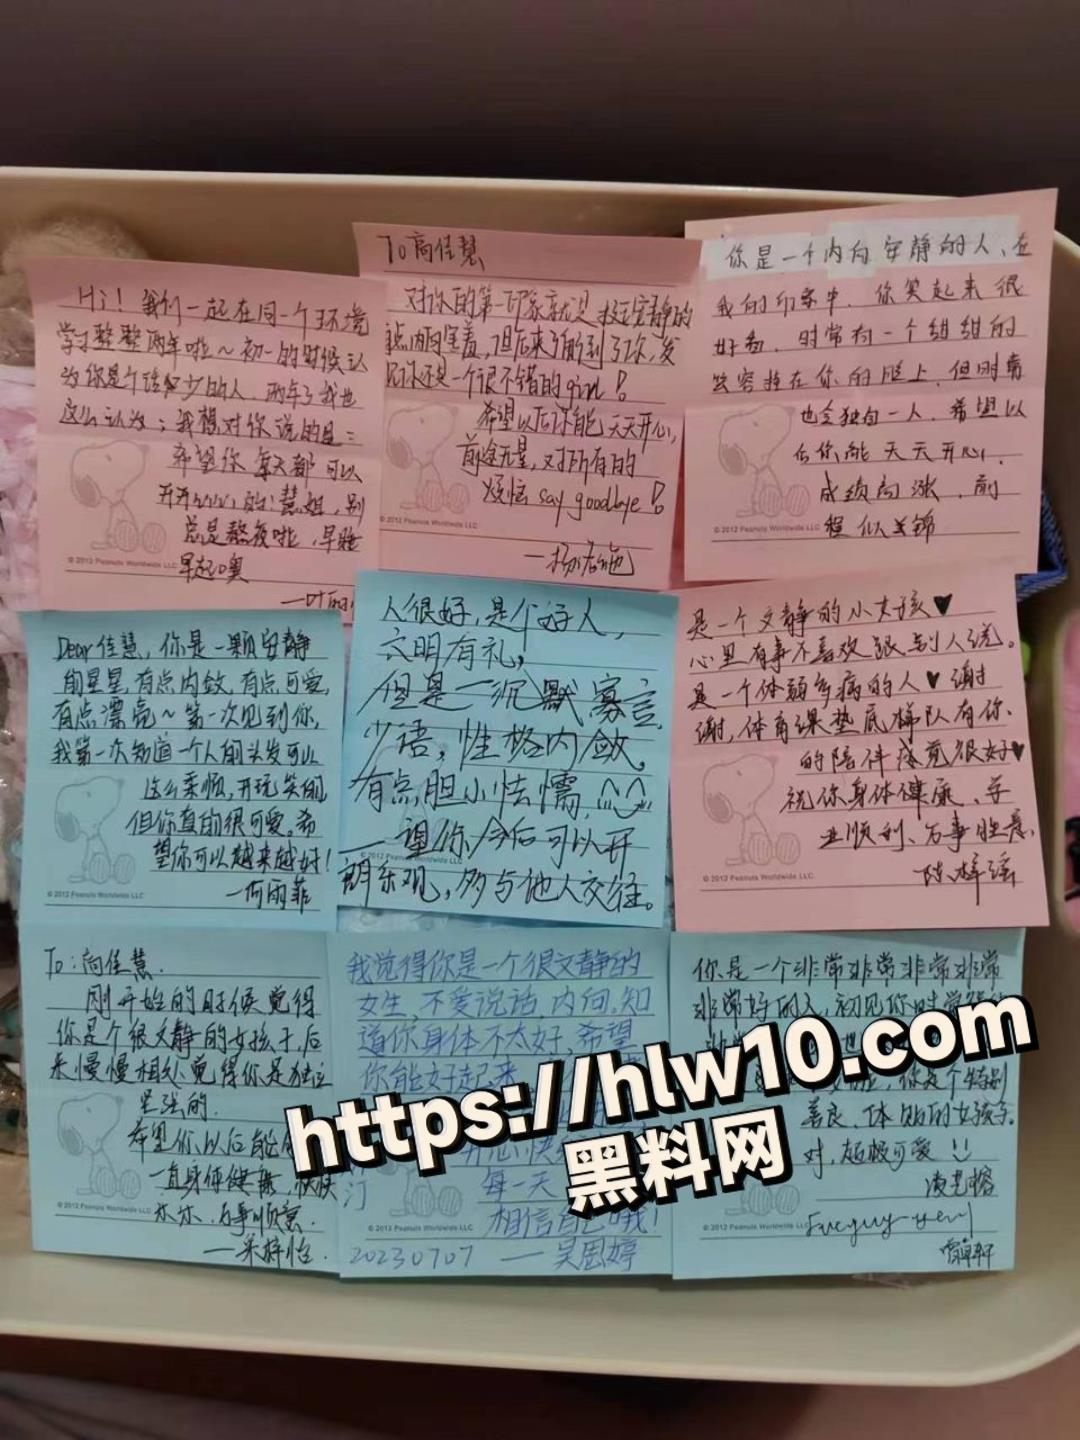 Hi！我们一起在同一个环境
学习整整两年啦～初一的时候认
为你是个话很少的人，两年了我也
这么认为；我想对你说的是：
希望你每天都可以
开开心心的！慧姐，别
总是熬夜啦，早睡
早起噢
© 2012 Peanuts Worldwide LLC
To 向佳慧
对你的第一印象就是挺安静的
有点内向害羞，但后来了解到了你，发
现你还是一个很不错的girl！
希望以后你能天天开心，
前途无量，对所有的
烦恼say goodbye！
© 2012 Peanuts Worldwide LLC
你是一个内向安静的人，在
我的印象中，你笑起来很
好看，时常有一个甜甜的
笑容挂在你的脸上，但时常
也会独自一人，希望以
后你能天天开心，
成绩高涨，前
程似锦
© 2012 Peanuts Worldwide LLC
Dear 佳慧，你是一颗安静
的星星，有点内敛，有点可爱，
有点漂亮～第一次见到你，
我第一次知道一个人的头发可以
这么柔顺，开玩笑的
但你真的很可爱。希
望你可以越来越好！
—何雨菲
© 2012 Peanuts Worldwide LLC
人很好，是个好人，
文明有礼，
但是一沉默寡言
少语，性格内敛，
有点胆小怯懦，
望你今后可以开
朗乐观，多与他人交往。
是一个文静的小女孩♥
心里有事不喜欢跟别人说。
是一个体弱多病的人♥谢
谢，体育课垫底梯队有你
的陪伴感觉很好♥
祝你身体健康、学
业顺利、万事胜意、
陈梓瑶
© 2012 Peanuts Worldwide LLC
To：向佳慧.
刚开始的时候觉得
你是个很文静的女孩子，后
来慢慢相处觉得你是独立
坚强的.
希望你以后能
一直身体健康，快快
乐乐，万事顺意.
© 2012 Peanuts Worldwide LLC
我觉得你是一个很文静的
女生，不爱说话，内向，知
道你身体不太好，希望
你能好起来
每一天
相信自己哦！
20230707 —吴思婷
© 2012 Peanuts Worldwide LLC
你是一个非常非常非常非常
非常好的人，初见你时觉得
你是个特别
善良、体贴的女孩子。
对，超极可爱！！
© 2012 Peanuts Worldwide LLC
https://hlw10.com
黑料网